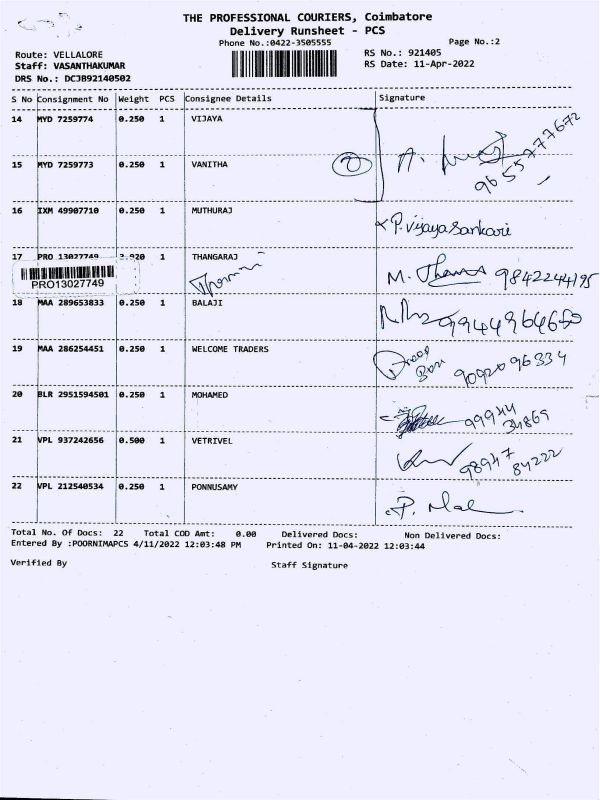 THE PROFESSIONAL COURIERS, Coimbatore
Delivery Runsheet - PCS
Phone No.:0422-3505555 Page No.:2
Route: VELLALORE RS No.: 921405
Staff: VASANTHAKUMAR RS Date: 11-Apr-2022
DRS No.: DCJB92140502
S No Consignment No Weight PCS Consignee Details Signature
14 MYD 7259774 0.250 1 VIJAYA
9655777672
15 MYD 7259773 0.250 1 VANITHA 2
16 IXM 49907710 0.250 1 MUTHURAJ P. Vijayasankari
17 PRO 13027749 2.920 1 THANGARAJ
PRO13027749 M. 9842244195
18 MAA 289653833 0.250 1 BALAJI 9944964650
19 MAA 286254451 0.250 1 WELCOME TRADERS 9092096334
20 BLR 2951594501 0.250 1 MOHAMED 99944
34869
21 VPL 937242656 0.500 1 VETRIVEL 98947
84222
22 VPL 212540534 0.250 1 PONNUSAMY P.
Total No. Of Docs: 22 Total COD Amt: 0.00 Delivered Docs: Non Delivered Docs:
Entered By :POORNIMAPCS 4/11/2022 12:03:48 PM Printed On: 11-04-2022 12:03:44
Verified By Staff Signature